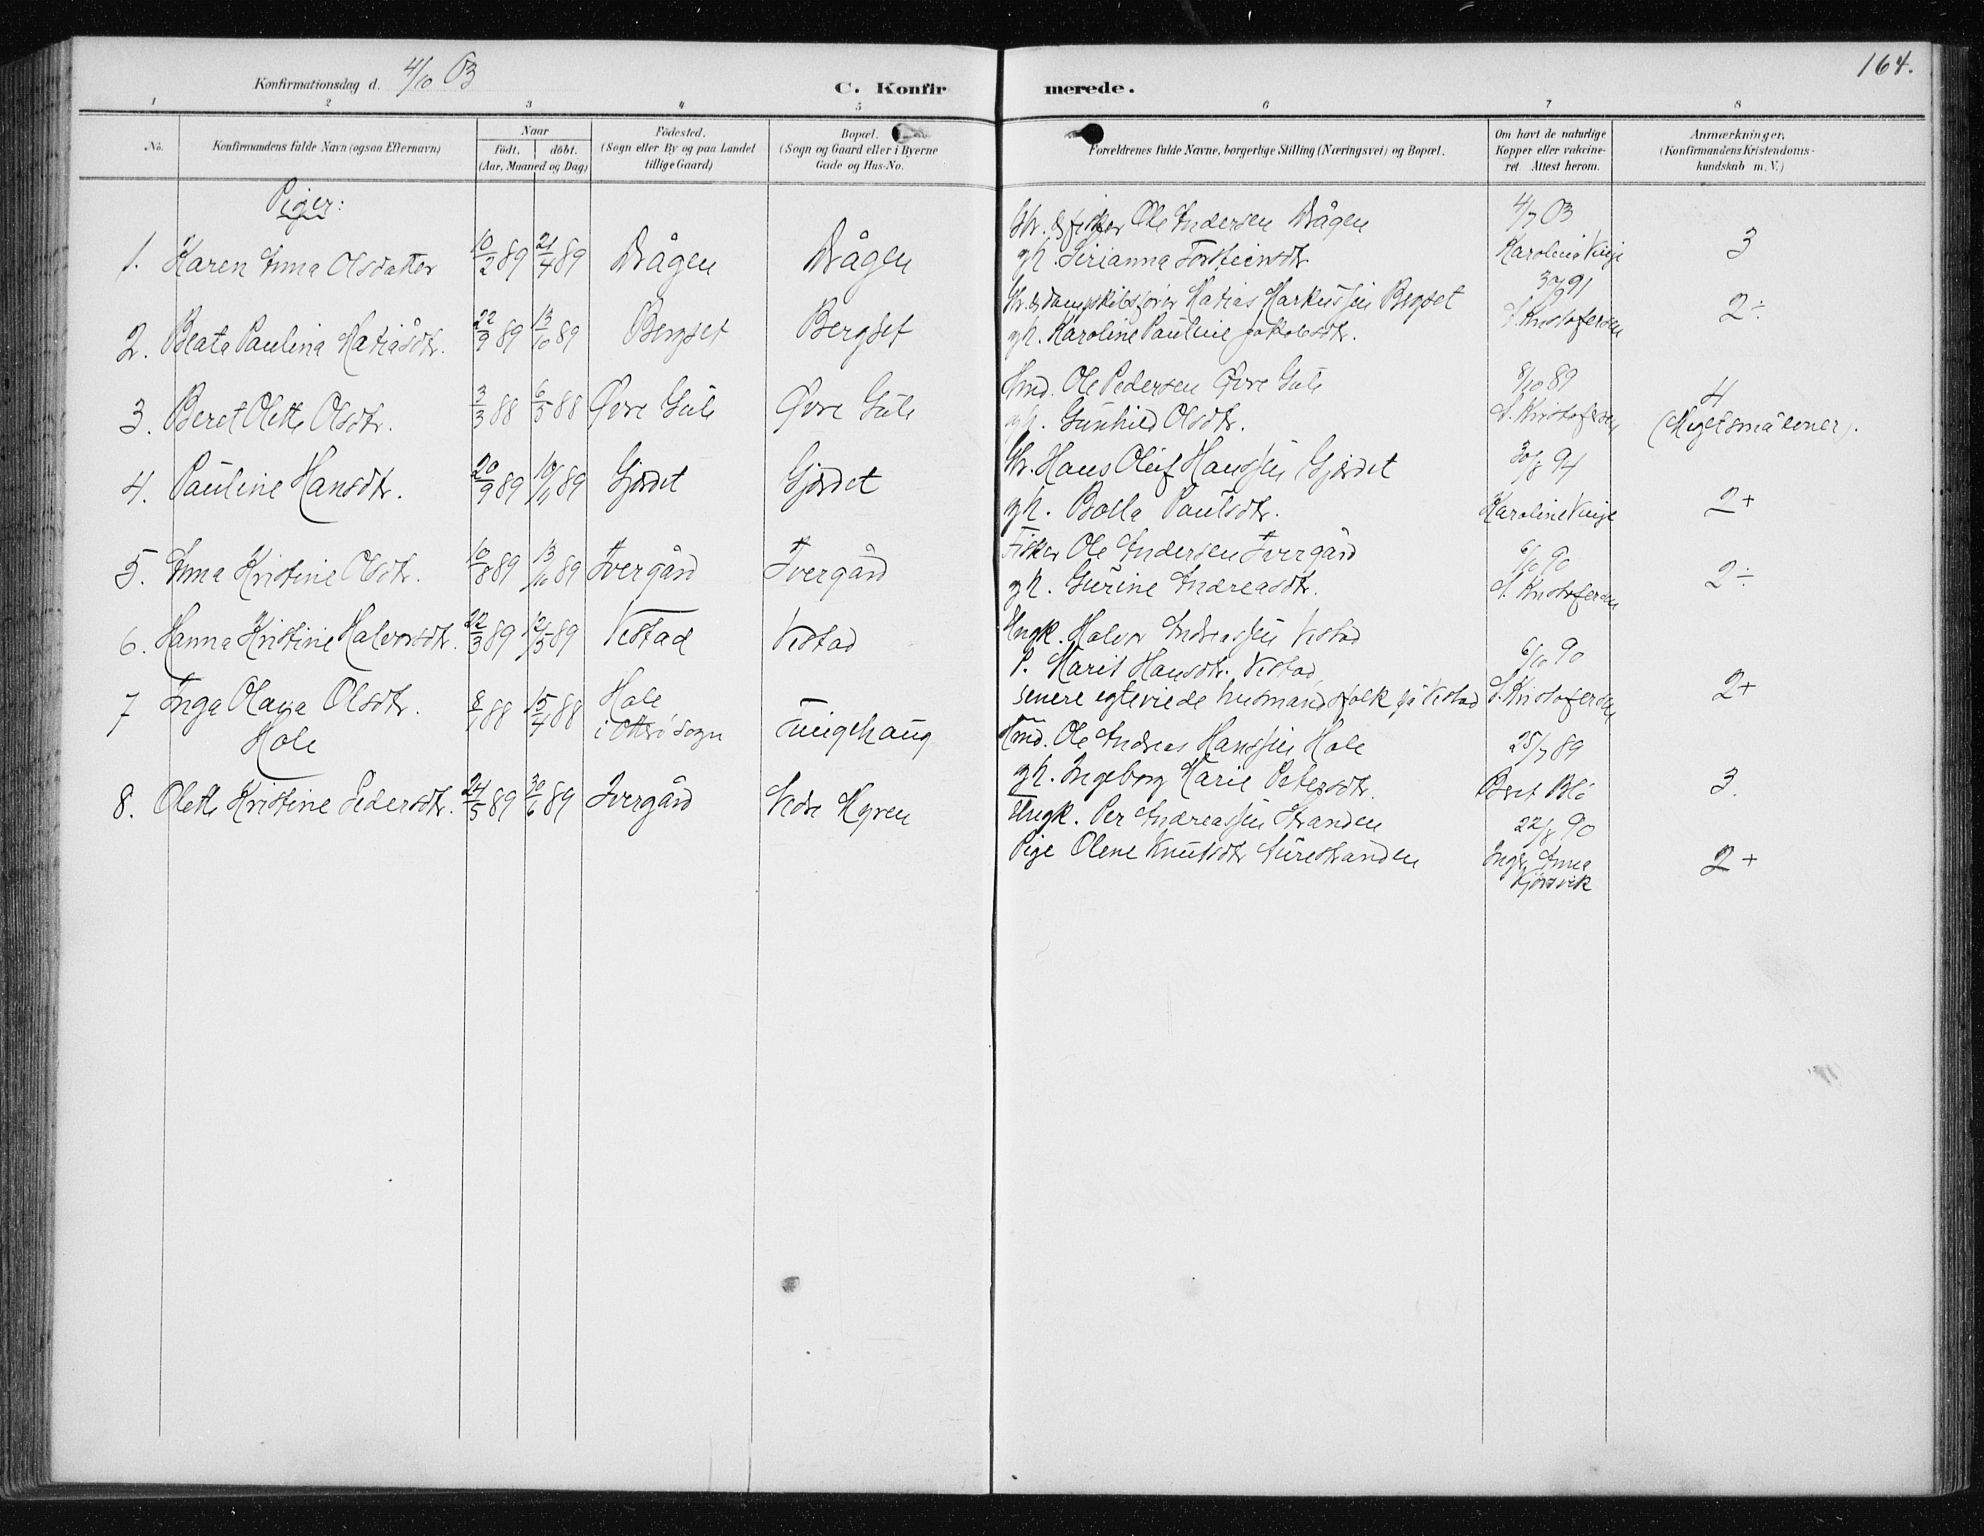 164.
Konfirmationsdag d. 4/10 03
C. Konfirmerede.
1 2 3 4 5 6 7 8
No.
Konfirmandens fulde Navn (ogsaa Efternavn)
Naar
født. døbt.
(Aar, Maaned og Dag)
Fødested.
(Sogn eller By og paa Landet
tillige Gaard)
Bopæl.
(Sogn og Gaard eller i Byerne
Gade og Hus-No.
Forældrenes fulde Navne, borgerlige Stilling (Næringsvei) og Bopæl.
Om havt de naturlige
Kopper eller vakcine-
ret. Attest herom.
Anmærkninger,
(Konfirmandens Kristendoms-
kundskab m. V.)
Piger:
1. Karen Anna Olsdatter 10/2 89 21/4 89 Drågen Drågen
Gbr. & fisker Ole Andersen Drågen
gh. Sirianna Torsteinsdtr
4/7 03
Karoline Vinje
3
2. Beata Paulina Matiasdtr. 22/9 89 13/10 89 Bergset Bergset
Gbr. & dampskibsfører Matias Markussen Bergset
gh. Karoline Pauline Jakobsdtr.
30/9 91
S. Kristofersen
2÷
3. Beret Olette Olsdtr. 3/3 88 6/5 88 Øvre Gule Øvre Gule
Hmd. Ole Pedersen Øvre Gule
gh. Gunhild Olsdtr.
8/10 89
S. Kristofersen
4
(Meget små evner).
4. Pauline Hansdtr. 20/9 89 10/11 89 Gjærdet Gjærdet
Gbr. Hans Oluf Hanssen Gjærdet
gh. Bolla Paulsdtr.
30/8 94
Karoline Vinje
2+
5. Anna Kristine Olsdtr. 10/8 89 13/10 89 Tvergård Tvergård
Fisker Ole Andersen Tvergård
gh. Gurine Andreasdtr.
6/10 90
S. Kristofersen
2÷
6. Hanna Kristine Halvorsdtr. 22/3 89 12/5 89 Vestad Vestad
Ungk. Halvor Andreassen Vestad
P. Marit Hansdtr. Vestad,
senere egteviede husmandsfolk på Vestad
6/10 90
S. Kristofersen
2+
7 Inga Olava Olsdtr. 8/1 88 15/4 88 Hole Tungehaug
Hole i Otterø sogn
Hmd. Ole Andreas Hanssen Hole
gh. Ingeborg Marie Petersdtr.
25/7 89
Beret Blø
3.
8. Olette Kristine Pedersdtr. 24/5 89 30/6 89 Tvergård Nedre Myren
Ungk. Per Andreassen Stranden
Pige Olene Knutsdtr Surestranden
22/8 90
Ingb. Anna
Kjørsvik
2+